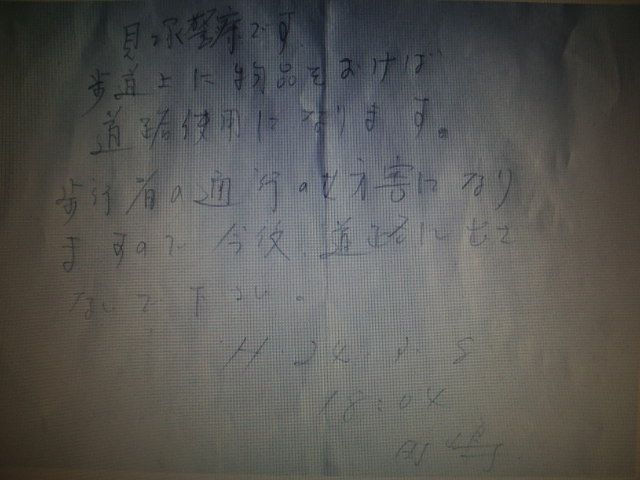 警察です。
歩道上に物品をおけば
道路使用になります。
歩行者の通行の妨害になり
ますので今後、道路に出さ
ないで下さい。
H.24.
18:04